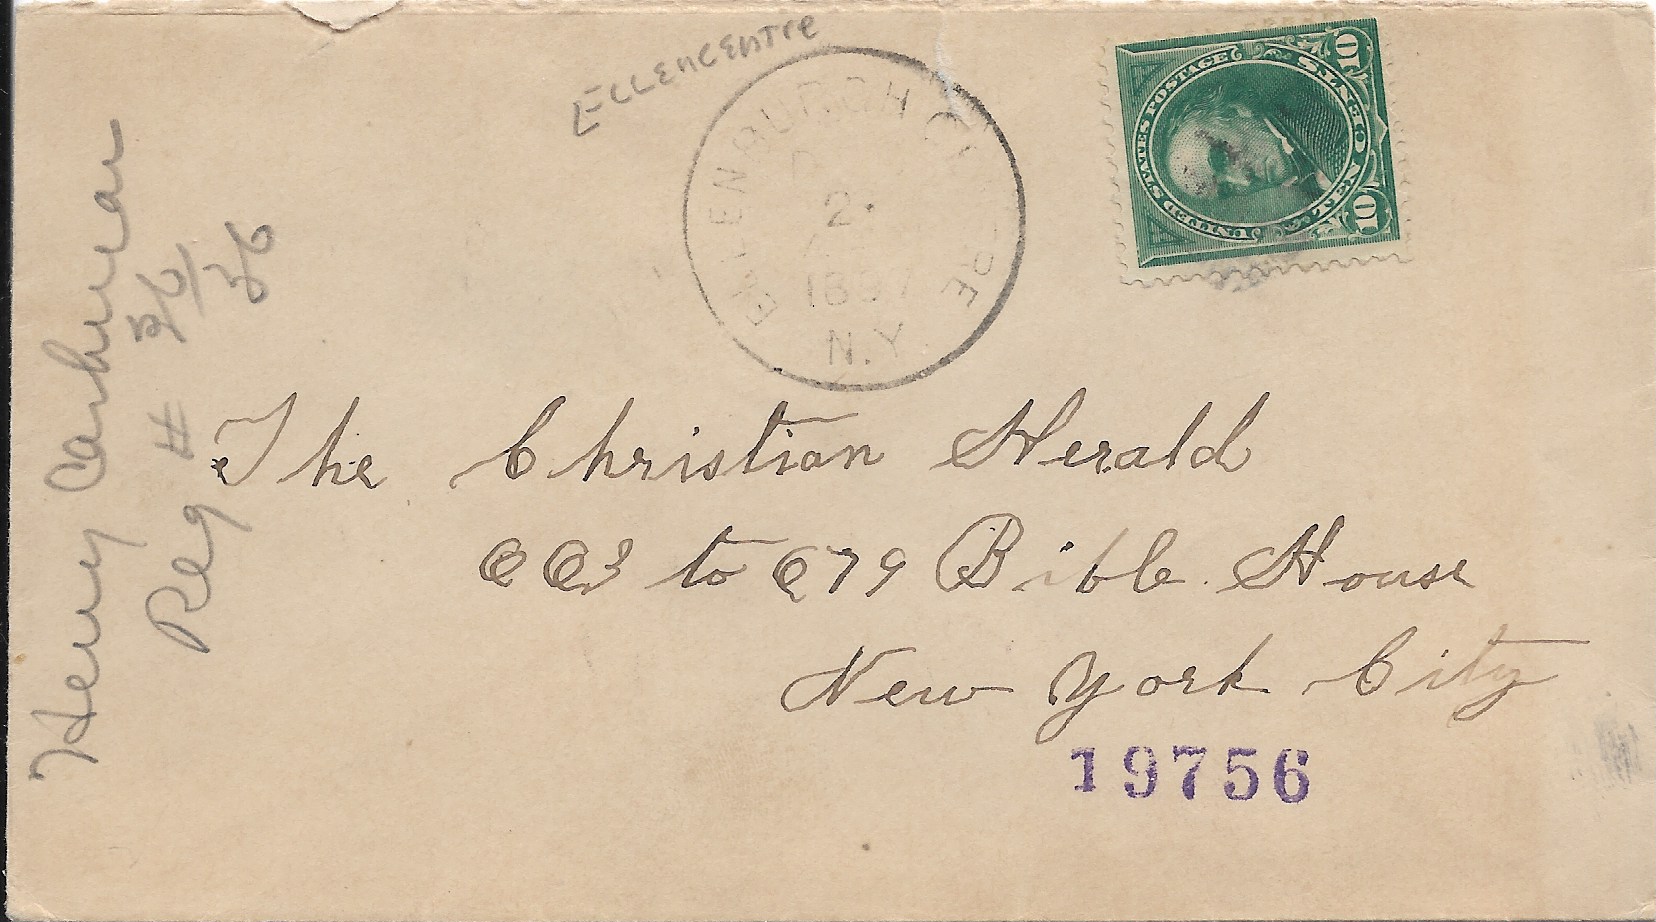 ELLENCENTRE
ELLENBURGH CENTRE
2
1897
N.Y.
UNITED STATES POSTAGE
TEN CENTS
10
10
Henry
Reg #
The Christian Herald
to 879 Bible House
New York City
19756